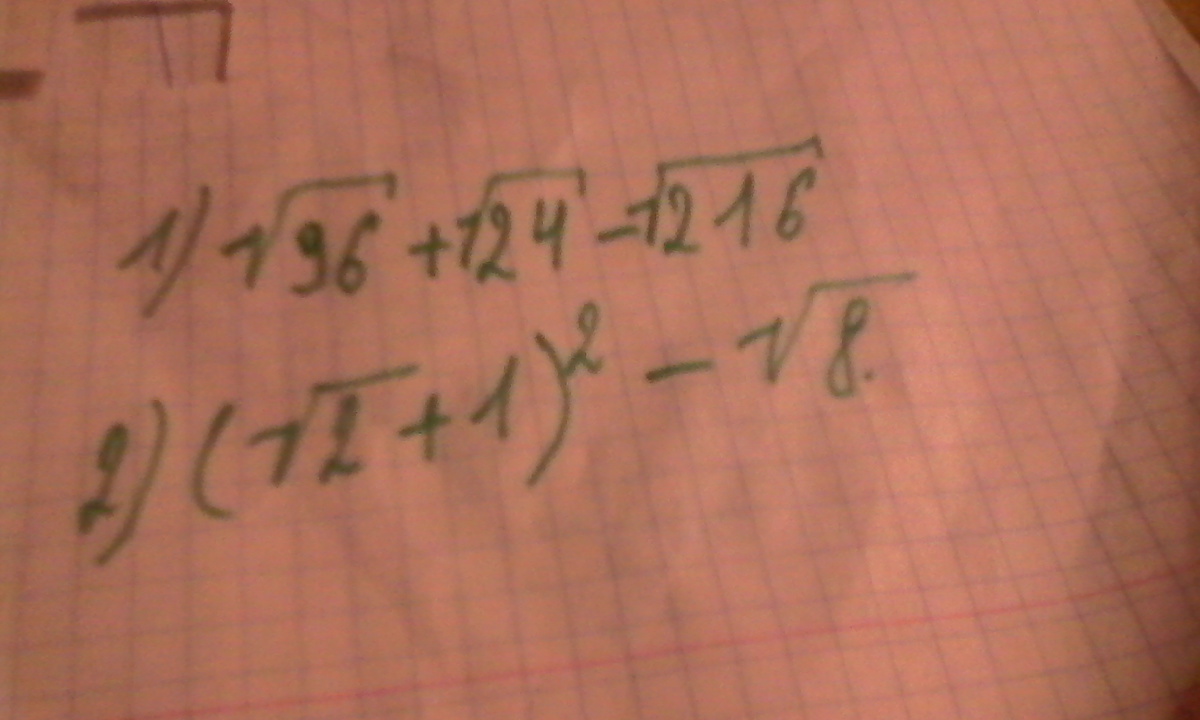 1) √96 + √24 - √216
2) (√2 + 1)² - √8.